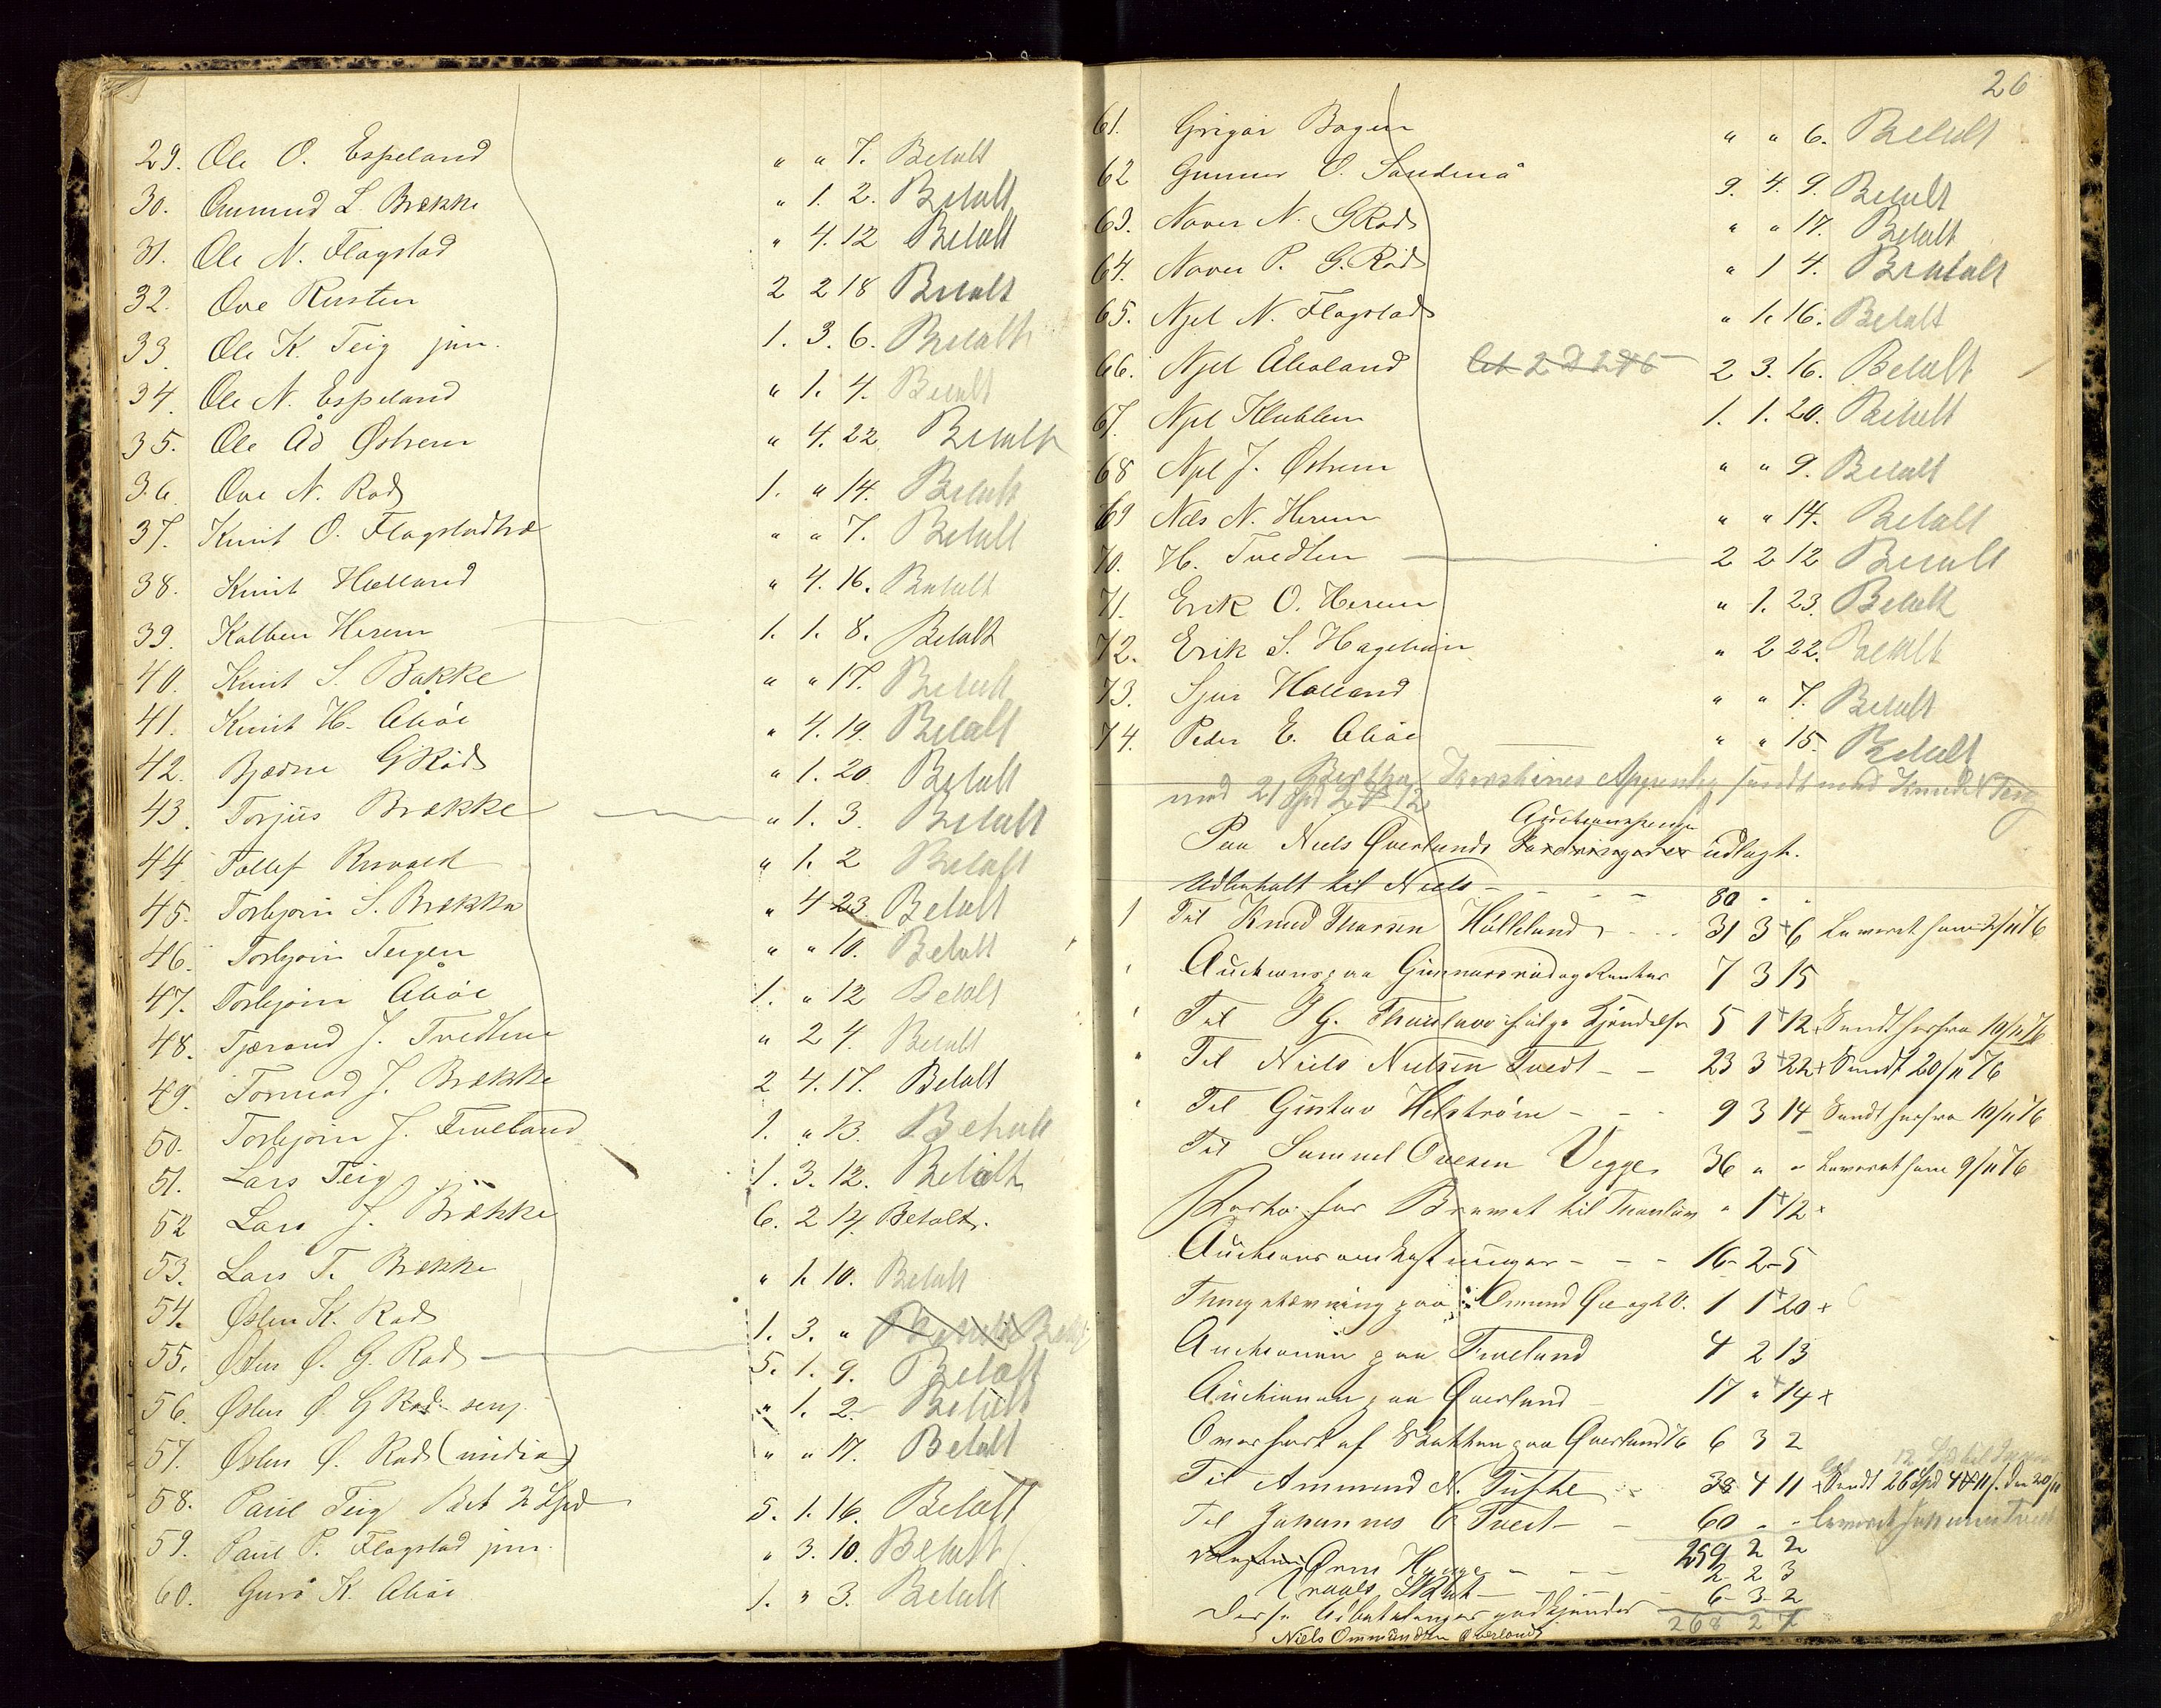 29. Ole O. Espeland " " 7. Betalt
30. Gunmund L. Brække " 1. 2. Betalt
31. Ole N. Flagstad " 4. 12 Betalt
32. Ove Rusten 2 2 18 Betalt
33. Ole K. Teig jun. 1. 3. 6. Betalt
34. Ole N. Espeland " 1. 4. Betalt
35. Ole Åd Østrem " 4. 22 Betalt
36. Ove N. Rød 1. " 14. Betalt
37. Knut O. Flagstadtræ " " 7. Betalt
38. Knut Halland " 4. 16. Betalt
39. Kolben Herem 1. 1. 8. Betalt
40. Knut S. Bakke " " 17. Betalt
41. Knut H. Aboe " 4. 19. Betalt
42. Bjødne G Rød " 1. 20 Betalt
43. Torjus Brække " 1. 3. Betalt
44 Tollef Risvold " 1. 2 Betalt
45. Torbjørn S. Brekke " 4 23 Betalt
46. Torbjørn Teigen " " 10. Betalt
47. Torbjørn Aboe 1. " 12 Betalt
48. Tjerand J. Tvedten " 2 4. Betalt
49. Tormod J. Brække 2 4. 17. Betalt
50. Torbjørn J. Tveeland 1. " 13. Betalt
51. Lars Teig 1. 3. 12. Betalt
52 Lars J. Brække 6. 2 14. Betalt.
53. Lars T. Brække " 1. 10. Betalt
54. Østen K. Rød 1. 3. " Betalt
55. Østen Ø. G. Rød 5. 1. 9. Betalt
56. Østen Ø. G Rød senj. " 1. 2. Betalt
57. Østen Ø. Rød (midia) " " 17. Betalt
58. Paul Teig Bet 2 Spd 5. 1. 16. Betalt
59. Paul P. Flagstad jun. " 3. 10. Betalt
60. Guro K. Aboe 1. " 3. Betalt
26
61. Grigar Bogen " " 6. Betalt
62 Gunner O. Sandenå 9. 4. 9. Betalt
63. Naver N. G Rød " " 17. Betalt
64. Naver P. G. Rød " 1 4. Betalt
65. Njel N. Flagstad " 1. 16. Betalt
66. Njel Åboland 2 3. 16. Betalt
67. Njel Klubben 1. 1. 20. Betalt
68 Njel J. Østrem " " 9. Betalt
69 Nils N. Herem " " 14. Betalt
70. H. Tvedten 2 2 12 Betalt
71. Erik O. Herem " 1. 23. Betalt
72. Erik S. Hagelvin " 2 22. Betalt
73. Sjur Halland " " 7. Betalt
74. Peder E. Aboe " " 15. Betalt
Bertha sendt med Knud K Teig
med 21 Spd 2 12
Auctionspenge
Paa Niels Qverlands udlagt.
Udbetalt til Niels - - - - 80 " "
Til Knud Tharsen Hålleland - - 31 3 6 Leveret ham 2/11 76
Auctions paa Gunnarsrød og Renter 7 3 15
Til J G. Thaulow ifølge Kjendelse 5 1 12 Sendt herfra 10/11 76
Til Niels Nielsen Tvedt - - 23 3 22 Sendt 20/11 76
Til Gustav Helstrøm - - - 9 3 14 Sendt herfra 10/11 76
Til Samuel Ovesen Vegge 36 " " Leveret ham 9/11 76
Porto for Brevet til Thaulow " 1 12 x
Auctions omkostninger - - - 16 - 2 - 5
Thingstævning paa Omund Qve og 1 1 20 x
Auctionen paa Tveeland 4 2 13
Auctionen paa Qverland - 17 " 14 x
Overført af Skatten paa Qverland 76 6 3 2
Til Ammund N. Tufte 38 4 11 x Sendt 26 Spd 4 11 s. den 20/11
Til Johannes O Tvedt - - 60 " " Leveret Tvedt
259 2 2
Orm Hauge - - - 2 - 2 3
6 - 3 - 2
Disse Udbetalinger godkjendes
268 2 7
Niels Ommundsen Qverland